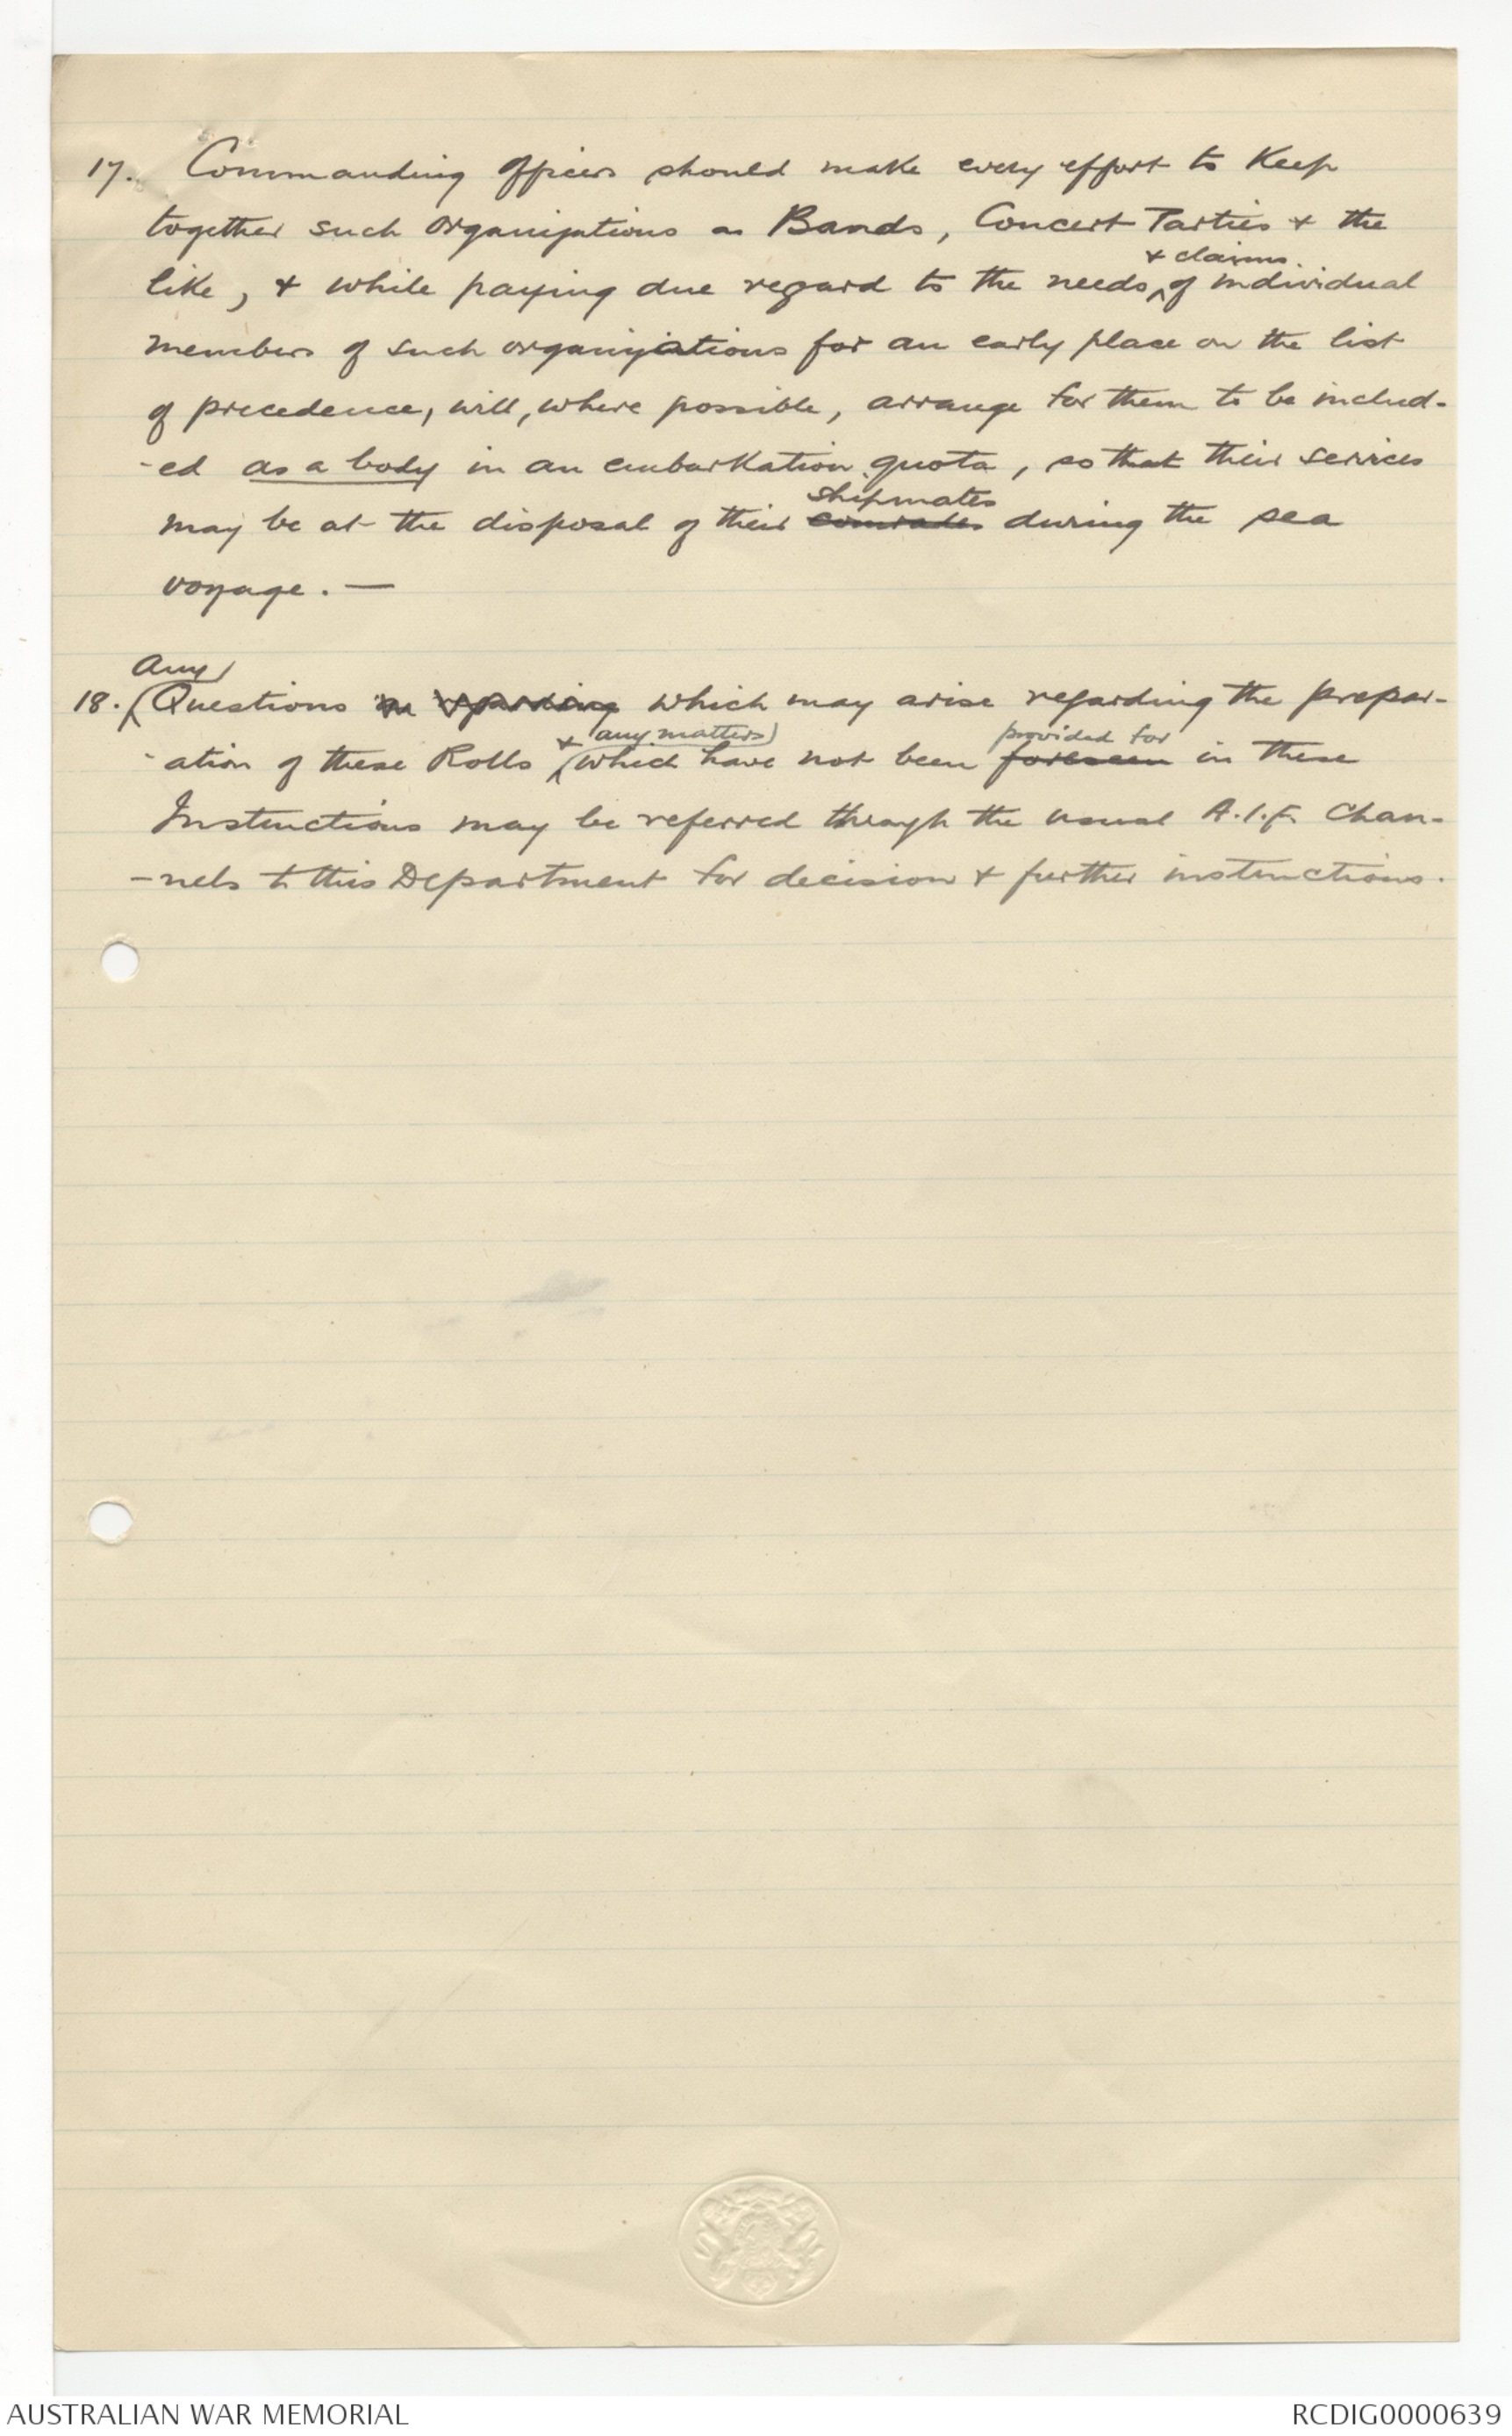 17. Commanding Officers should make every effort to Keep
together such organizations as Bands, Concert Parties & the
like, & while paying due regard to the needs & claims of individual
members of such organizations for an early place on the list
of precedence, will, where possible, arrange for them to be includ-
-ed as a body in an embarkation quota, so that their services
may be at the disposal of their comrades shipmates during the sea
voyage. —
18. Any Questions regarding which may arise regarding the prepar-
-ation of these Rolls & any matters which have not been foreseen provided for in these
Instructions may be referred through the usual A.I.F. Chan-
-nels to this Department for decision & further instructions.
AUSTRALIAN WAR MEMORIAL
RCDIG0000639